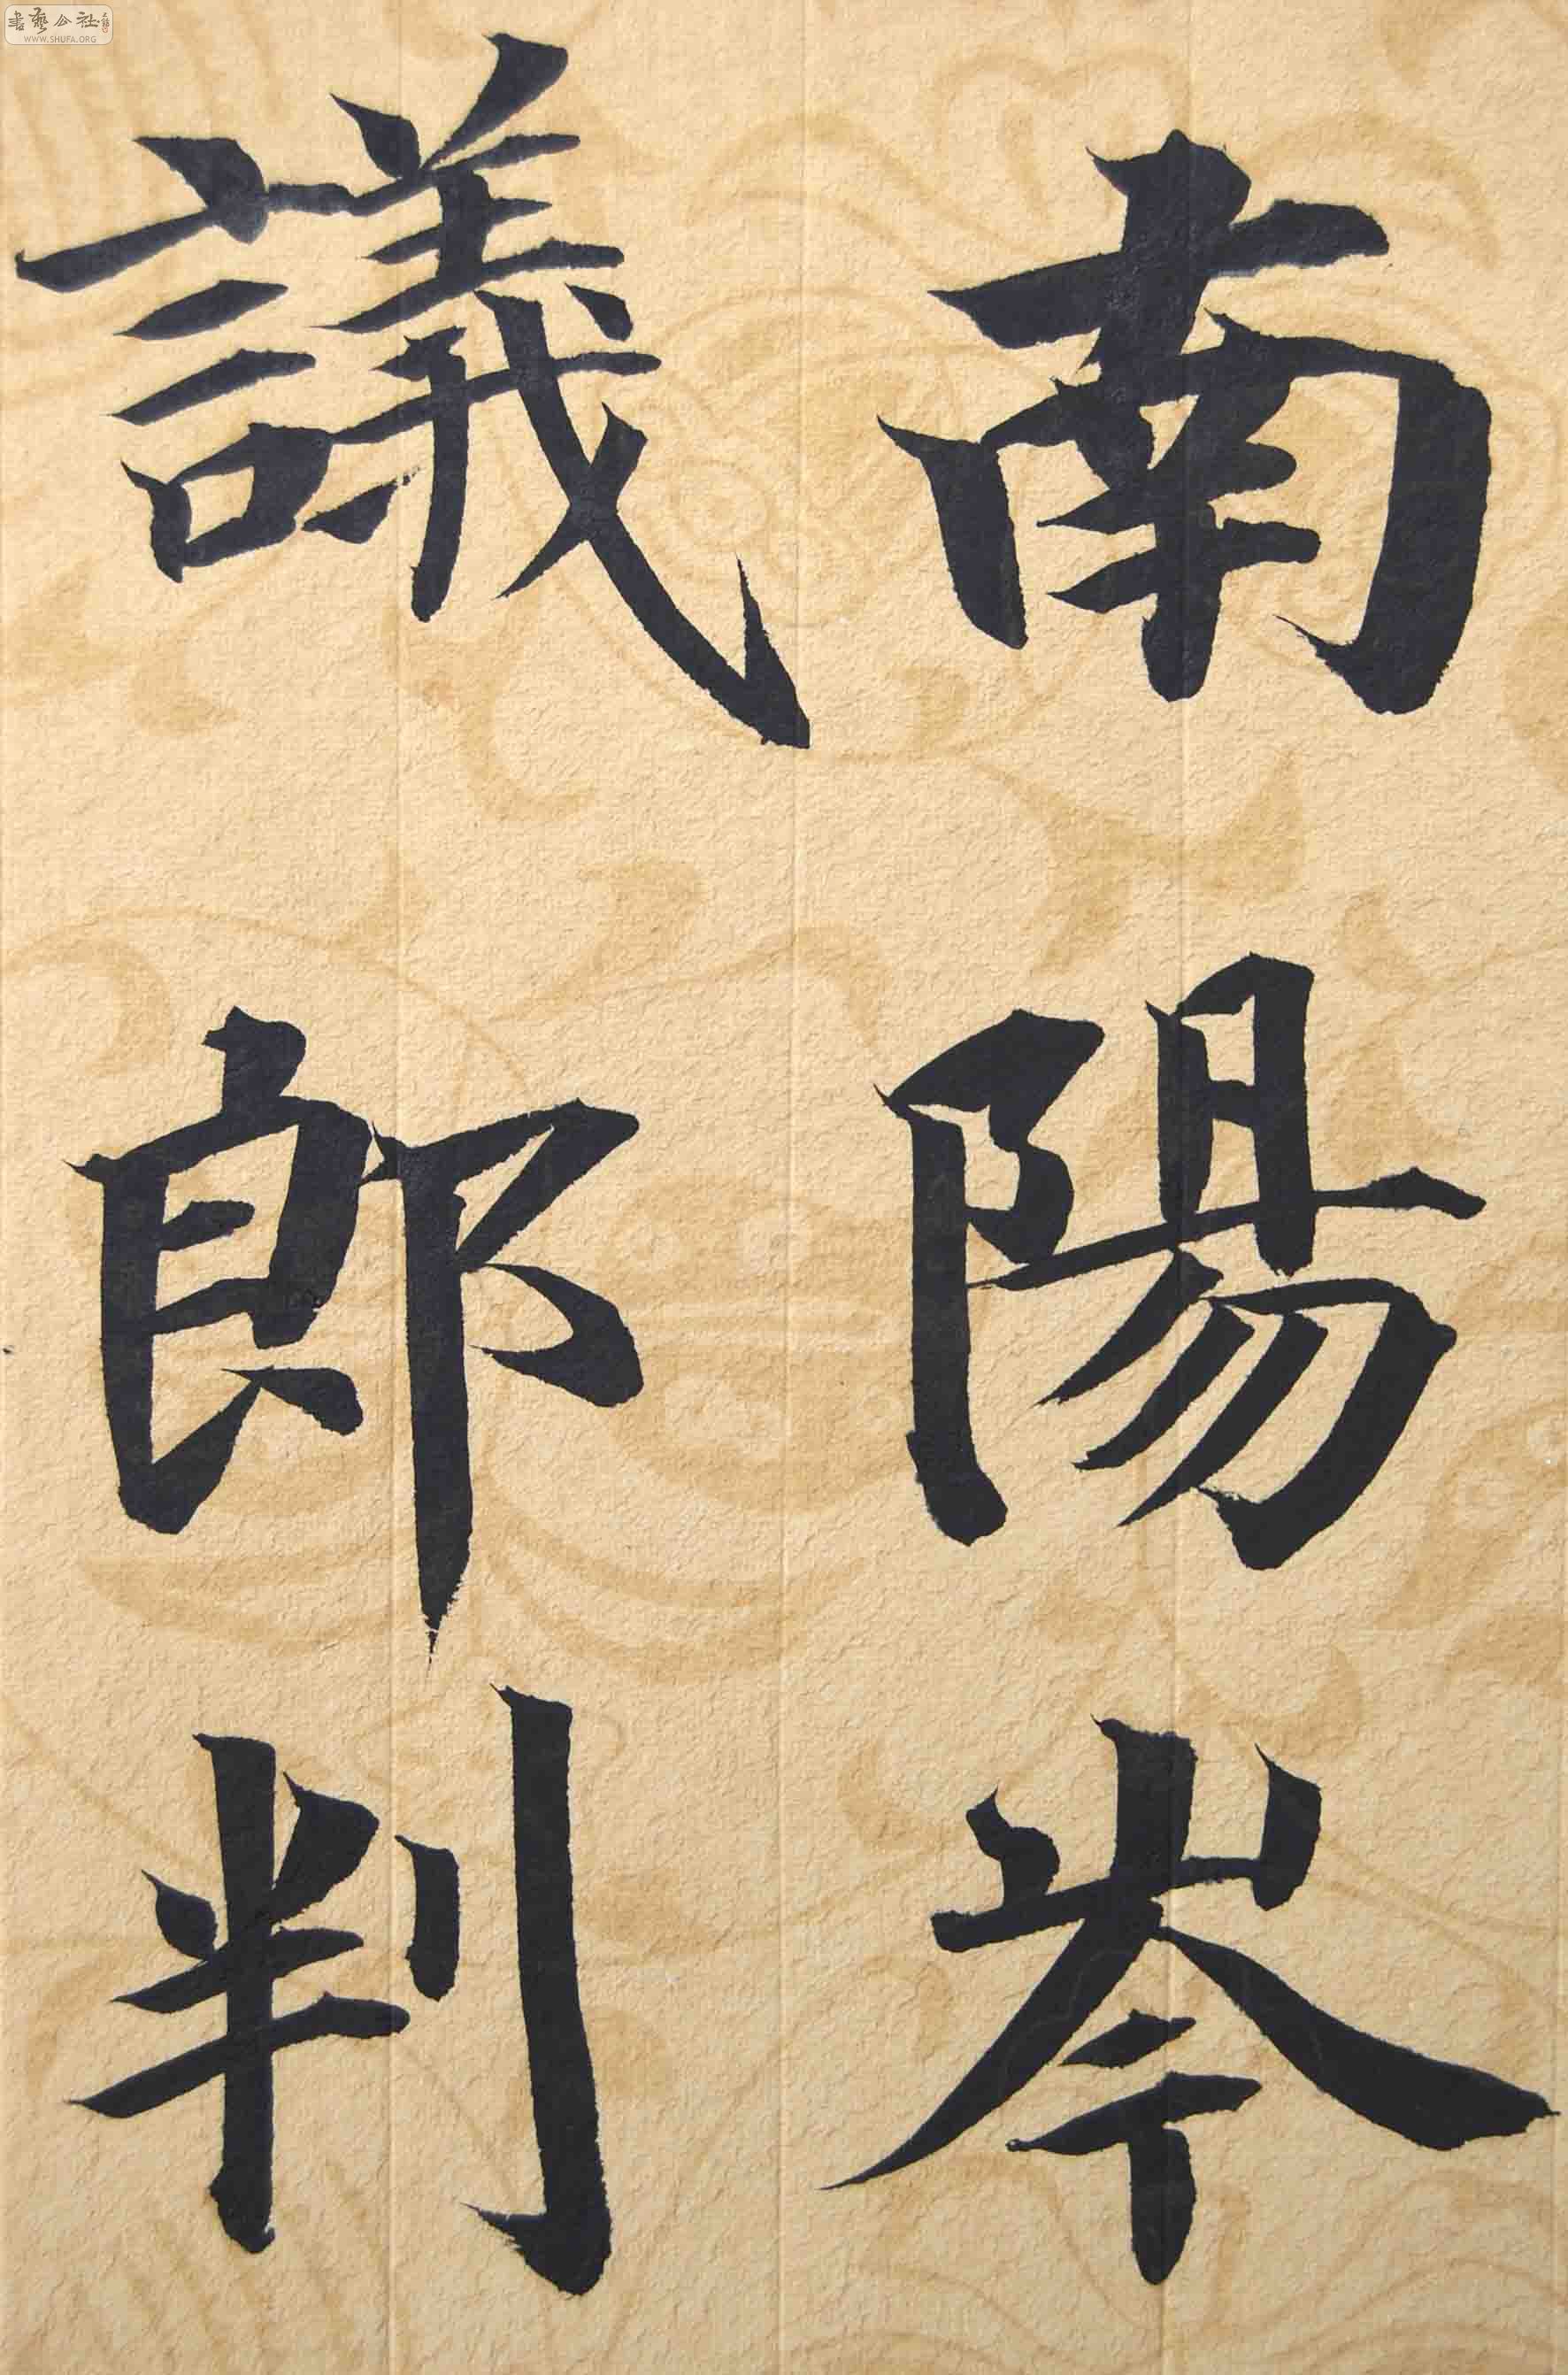 書藝公社
WWW.SHUFA.ORG
南陽岑
議郎判